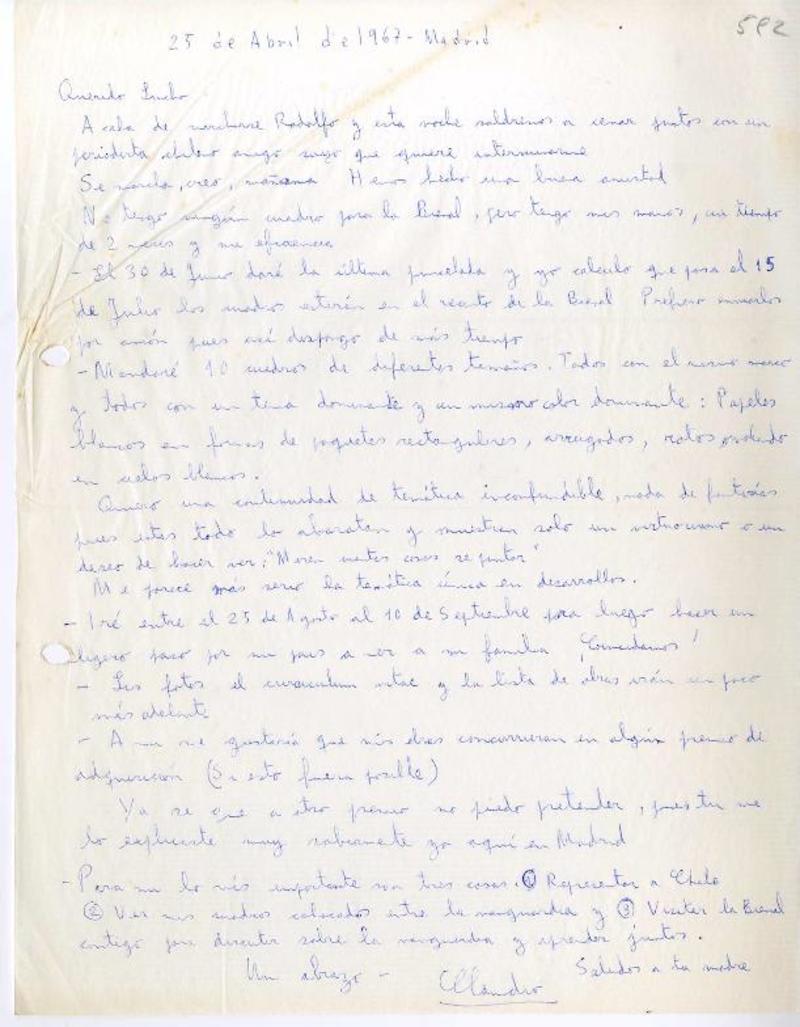 592
25 de Abril de 1967 - Madrid
Querido Lucho
Acaba de Rodolfo y esta noche saldremos a cenar juntos con un
periodista chileno amigo suyo que quiere
Se marcha, creo, mañana Hemos hecho una buena amistad
No tengo ningún cuadro para la Bienal, pero tengo mis manos, un tiempo
de 2 meses y mi eficiencia
- El 30 de Junio daré la última pincelada y yo calculo que para el 15
de Julio los cuadros estarán en el recinto de la Bienal Prefiero enviarlos
por avión pues así dispongo de más tiempo
- Mandaré 10 cuadros de diferentes tamaños. Todos con el mismo marco
y todos con un tema dominante y un mismo color dominante: Papeles
blancos en formas de paquetes rectangulares, arrugados, rotos,
en cielos blancos.
Quiero una continuidad de temática inconfundible, nada de fantasías
pues estas todo lo abaratan y muestran solo un virtuosismo o un
deseo de hacer ver: "Miren cuantas cosas se pintar"
Me parece más serio la temática única en desarrollos.
- Iré entre el 25 de Agosto al 10 de Septiembre para luego hacer un
ligero paso por mi pais a ver a mi familia
- Las fotos el curriculum vitae y la lista de obras irán un poco
más adelante
- A mi me gustaría que mis obras concurrieran en algún premio de
adquisición (Si esto fuera posible)
Ya se que a otro premio no puedo pretender, pues tu me
lo explicaste muy sabiamente ya aquí en Madrid
- Para mi lo más importante son tres cosas. ① Representar a Chile
② Ver mis cuadros colocados entre la vanguardia y ③ Visitar la Bienal
contigo para discutir sobre la vanguardia y aprender juntos.
Un abrazo - Saludos a tu madre
Claudio